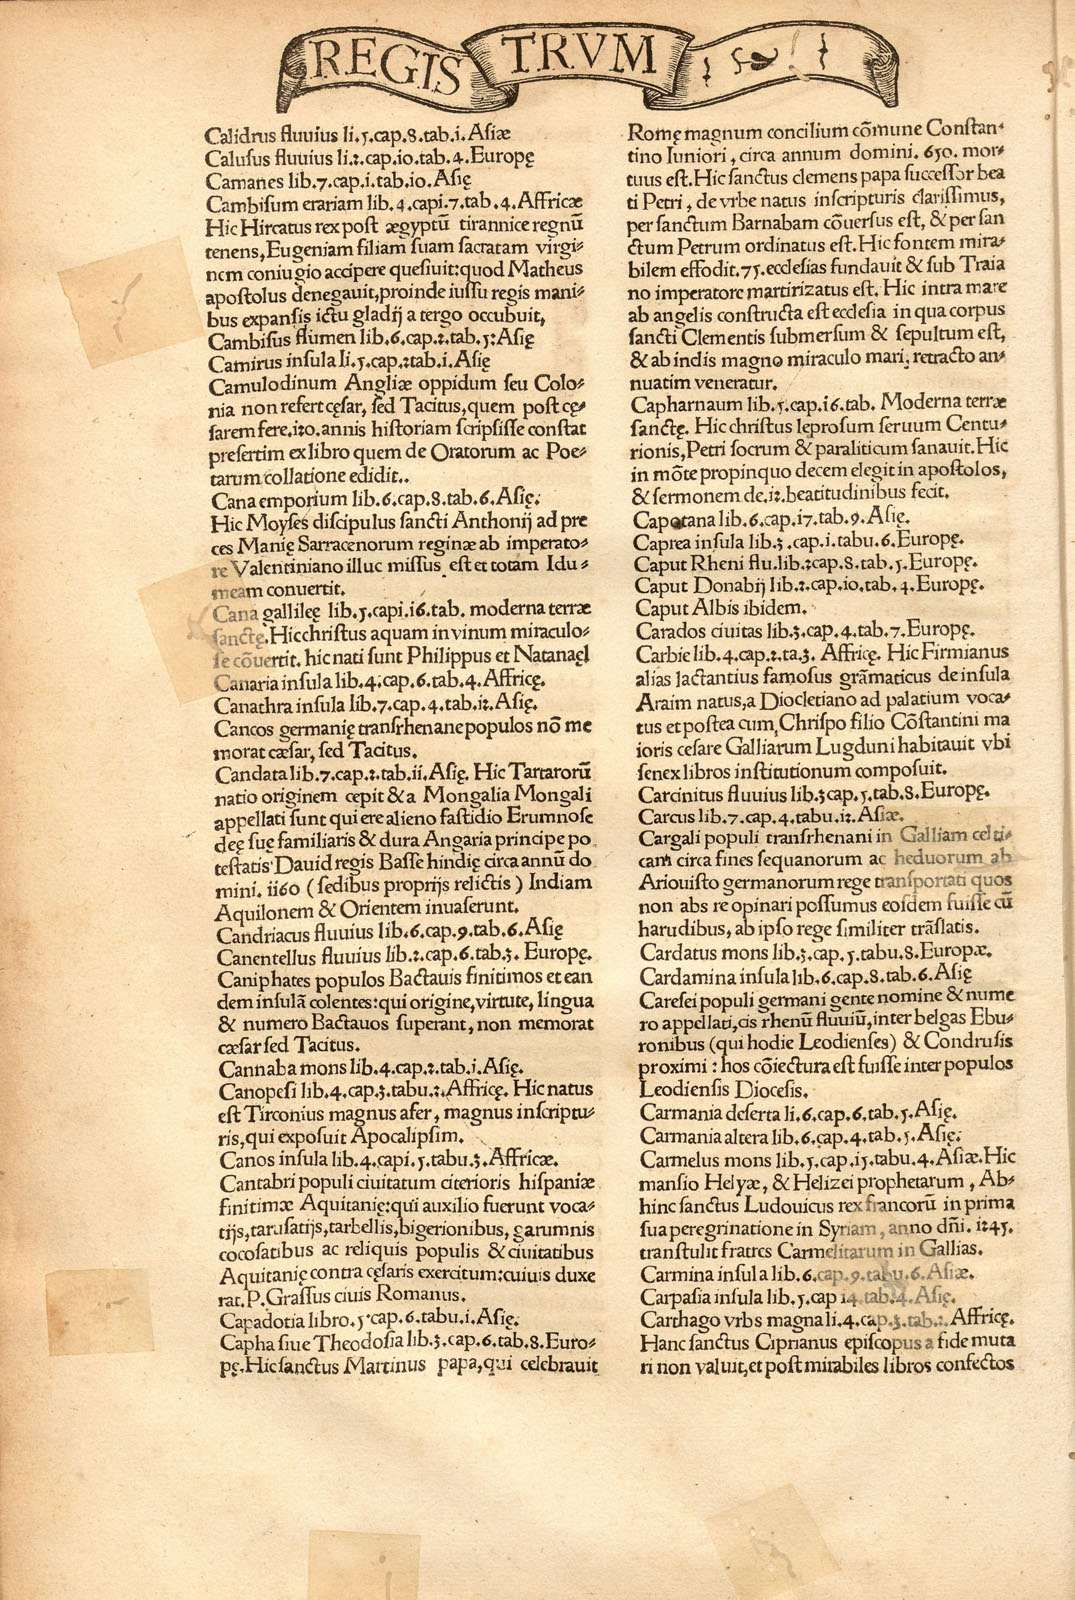 REGISTRVM
Calidrus fluuius li.5.cap.8.tab.i.Asiæ
Calusus fluuius li.2.cap.10.tab.4.Europę
Camanes lib.7.cap.i.tab.10.Asię
Cambisum erariam lib.4.capi.7.tab.4.Affricæ
Hic Hircatus rex post ægyptū tirannice regnū
tenens,Eugeniam filiam suam sacratam virgi⸗
nem coniugio accipere quesiuit:quod Matheus
apostolus denegauit,proinde iussu regis mani⸗
bus expansis ictu gladij a tergo occubuit,
Cambisus flumen lib.6.cap.2.tab.5:Asię
Camirus insula li.5.cap.2tab.i.Asię
Camulodinum Angliæ oppidum seu Colo⸗
nia non refert cęsar, sed Tacitus,quem post cę⸗
sarem fere.120.annis historiam scripsisse constat
presertim ex libro quem de Oratorum ac Poe⸗
tarum collatione edidit..
Cana emporium lib.6.cap.8.tab.6.Asię.
Hic Moyses discipulus sancti Anthonij ad pre
ces Manię Sarracenorum reginæ ab imperato⸗
re Valentiniano illuc missus est et totam Idu⸗
meam conuertit.
Cana gallileę lib.5.capi.16.tab. moderna terræ
sanctę.Hic christus aquam in vinum miraculo⸗
se cōuertit. hic nati sunt Philippus et Natanaęl
Canaria insula lib.4.cap.6.tab.4.Affricę.
Canathra insula lib.7.cap.4.tab.12.Asię.
Cancos germanię transrhenane populos nō me
morat cæsar, sed Tacitus.
Candata lib.7.cap.2.tab.ii.Asię. Hic Tartarorū
natio originem cepit & a Mongalia Mongali
appellati sunt qui ere alieno fastidio Erumnose
deę suę familiaris & dura Angaria principe po
testatis Dauid regis Basse hindię circa annū do
mini. 1160 (sedibus proprijs relictis) Indiam
Aquilonem & Orientem inuaserunt.
Candriacus fluuius lib.6.cap.9.tab.6.Asię
Canentellus fluuius lib.2.cap.6.tab.3. Europę.
Caniphates populos Bactauis finitimos et ean
dem insulā colentes:qui origine,virtute, lingua
& numero Bactauos superant, non memorat
cæsar sed Tacitus.
Cannaba mons lib.4.cap.2.tab.i.Asię.
Canopesi lib.4.cap.3.tabu.2.Affricę. Hic natus
est Tirconius magnus afer, magnus inscriptu⸗
ris,qui exposuit Apocalipsim.
Canos insula lib.4.capi.5.tabu.3.Affricæ.
Cantabri populi ciuitatum citerioris hispaniæ
finitimæ Aquitanię:qui auxilio fuerunt voca⸗
tijs,tarusatijs,tarbellis,bigerionibus, garumnis
cocosatibus ac reliquis populis & ciuitatibus
Aquitanię contra cęsaris exercitum:cuiuis duxe
rat.P.Grassus ciuis Romanus.
Capadotia libro.5.cap.6.tabu.i.Asię.
Capha siue Theodosia lib.3.cap.6.tab.8.Euro⸗
pę.Hic sanctus Martinus papa,qui celebrauit
Romę magnum concilium cōmune Constan⸗
tino Iuniori, circa annum domini. 650. mor⸗
tuus est. Hic sanctus clemens papa successor bea
ti Petri, de vrbe natus inscripturis clarissimus,
per sanctum Barnabam cōuersus est, & per san
ctum Petrum ordinatus est.Hic fontem mira⸗
bilem effodit.75.ecclesias fundauit & sub Traia
no imperatore martirizatus est. Hic intra mare
ab angelis constructa est ecclesia in qua corpus
sancti Clementis submersum & sepultum est,
& ab indis magno miraculo mari, retracto an⸗
nuatim veneratur.
Capharnaum lib.5.cap.16.tab. Moderna terræ
sanctę. Hic christus leprosum seruum Centu⸗
rionis,Petri socrum & paraliticum sanauit.Hic
in mōte propinquo decem elegit in apostolos,
& sermonem de.12.beatitudinibus fecit.
Capotana lib.6.cap.17.tab.9.Asię.
Caprea insula lib.3.cap.i.tabu.6.Europę.
Caput Rheni flu.lib.2cap.8.tab.5.Europę.
Caput Donabij lib.2.cap.10.tab.4.Europę.
Caput Albis ibidem.
Carados ciuitas lib.3.cap.4.tab.7.Europę.
Carbie lib.4.cap.2.ta.3. Affricę. Hic Firmianus
alias lactantius famosus grāmaticus de insula
Araim natus,a Diocletiano ad palatium voca⸗
tus et postea cum Chrispo filio Cōstantini ma
ioris cesare Galliarum Lugduni habitauit vbi
senex libros institutionum composuit.
Carcinitus fluuius lib.3cap.5.tab.8.Europę.
Carcus lib.7.cap.4.tabu.12.Asiæ.
Cargali populi transrhenani in Galliam celti⸗
cam circa fines sequanorum ac heduorum ab
Ariouisto germanorum rege transportati quos
non abs re opinari possumus eosdem fuisse cū
harudibus, ab ipso rege similiter trāslatis.
Cardatus mons lib.3.cap.5.tabu.8.Europæ.
Cardamina insula lib.6.cap.8.tab.6.Asię
Caresei populi germani gente nomine & nume
ro appellati,cis rhenū fluuiū,inter belgas Ebu⸗
ronibus (qui hodie Leodienses) & Condrusis
proximi : hos cōiectura est fuisse inter populos
Leodiensis Diocesis.
Carmania deserta li.6.cap.6.tab.5.Asię.
Carmania altera lib.6.cap.4.tab.5.Asię.
Carmelus mons lib.5.cap.15.tabu.4.Asiæ.Hic
mansio Helyæ, & Helizei prophetarum, Ab⸗
hinc sanctus Ludouicus rex francorū in prima
sua peregrinatione in Syriam, anno dñi. 1245.
transtulit fratres Carmelitarum in Gallias.
Carmina insula lib.6.cap.9.tabu.6.Asiæ.
Carpasia insula lib.5.cap 14.tab.4.Asię.
Carthago vrbs magna li.4.cap.3.tab.2.Affricę.
Hanc sanctus Ciprianus episcopus a fide muta
ri non valuit,et post mirabiles libros confectos